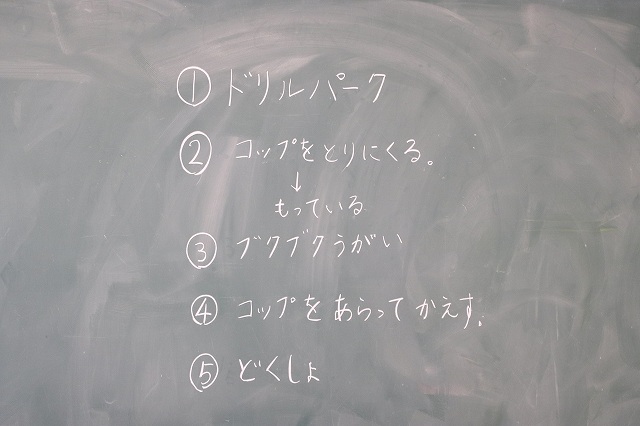 ①ドリルパーク
②コップをとりにくる。
↓
もっている
③ブクブクうがい
④コップをあらってかえす。
⑤どくしょ